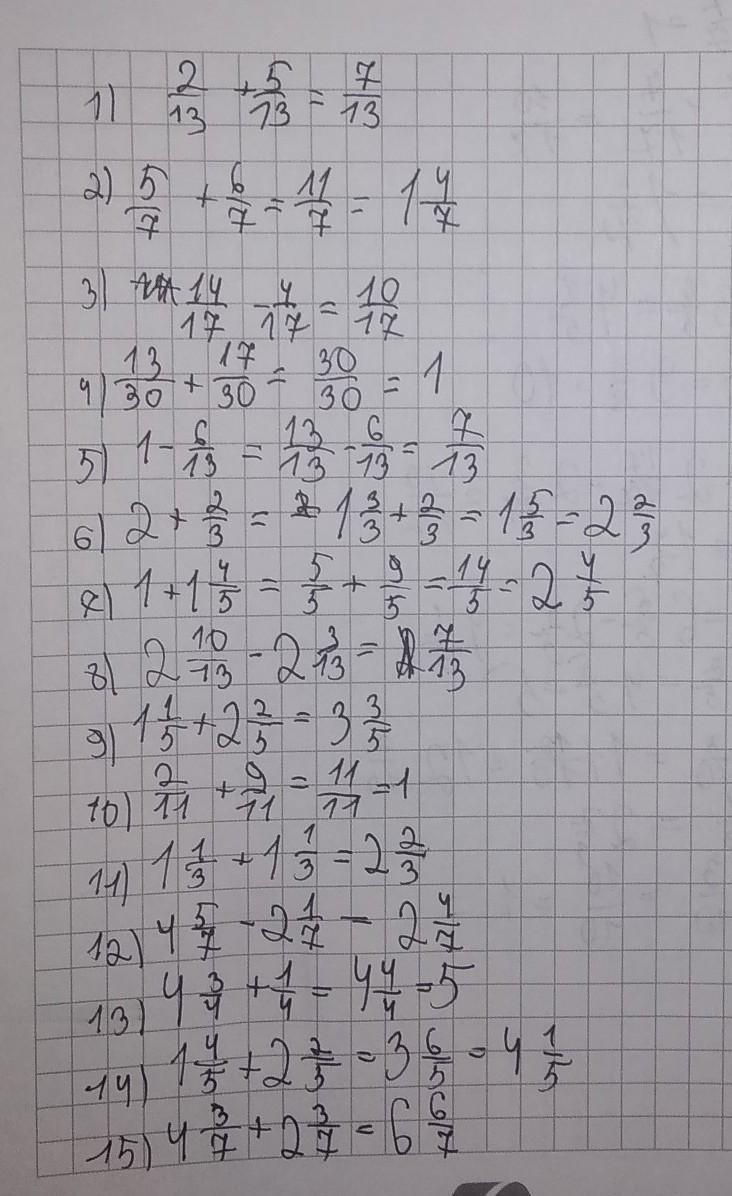 1) 2/13 + 5/13 = 7/13
2) 5/7 + 6/7 = 11/7 = 1 4/7
3) 14/17 - 4/17 = 10/17
4) 13/30 + 17/30 = 30/30 = 1
5) 1 - 6/13 = 13/13 - 6/13 = 7/13
6) 2 + 2/3 = 1 3/3 + 2/3 = 1 5/3 = 2 2/3
7) 1 + 1 4/5 = 5/5 + 9/5 = 14/5 = 2 4/5
8) 2 10/13 - 2 3/13 = 7/13
9) 1 1/5 + 2 2/5 = 3 3/5
10) 2/11 + 9/11 = 11/11 = 1
11) 1 1/3 + 1 1/3 = 2 2/3
12) 4 5/7 - 2 1/7 = 2 4/7
13) 4 3/4 + 1/4 = 4 4/4 = 5
14) 1 4/5 + 2 2/5 = 3 6/5 = 4 1/5
15) 4 3/7 + 2 3/7 = 6 6/7